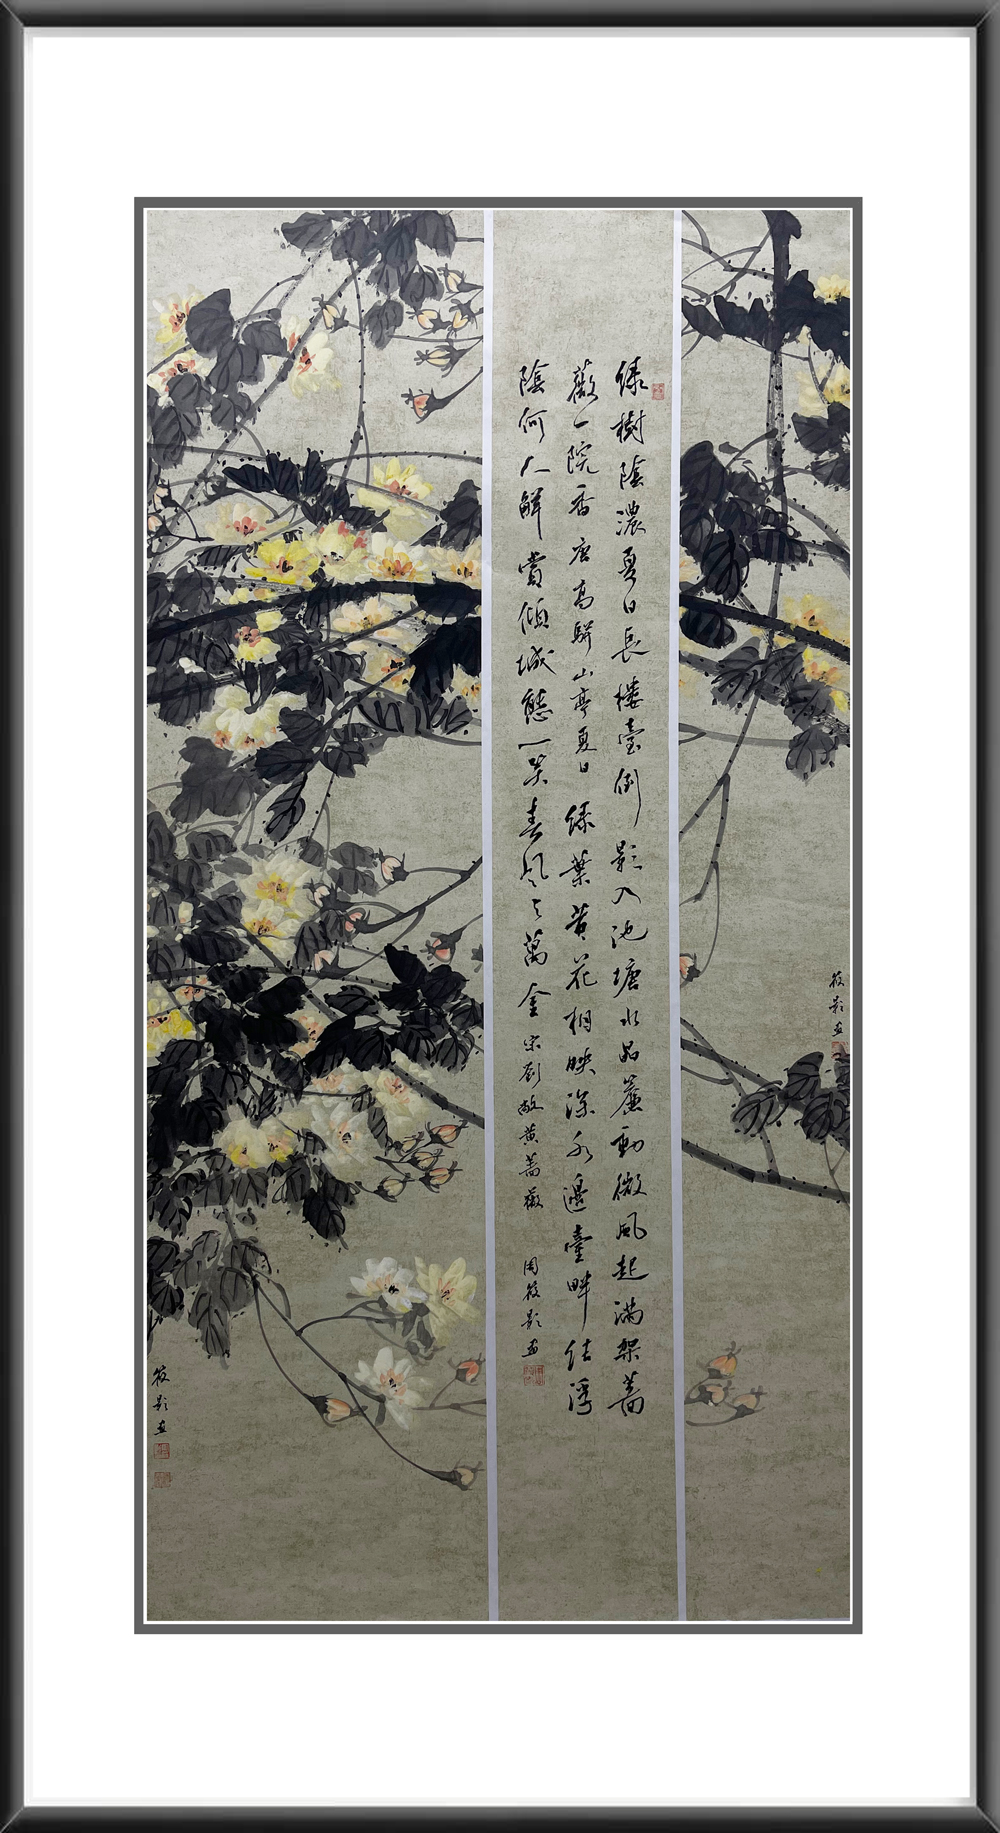 緑樹陰濃夏日長樓臺倒影入池塘水晶簾動微風起滿架薔
薇一院香唐高駢山亭夏日 緑葉黄花相映深水邊臺畔結浮
陰何人解賞傾城態一笑春風与萬金宋劉敞黄薔薇 周筱影画
筱影画
筱影画